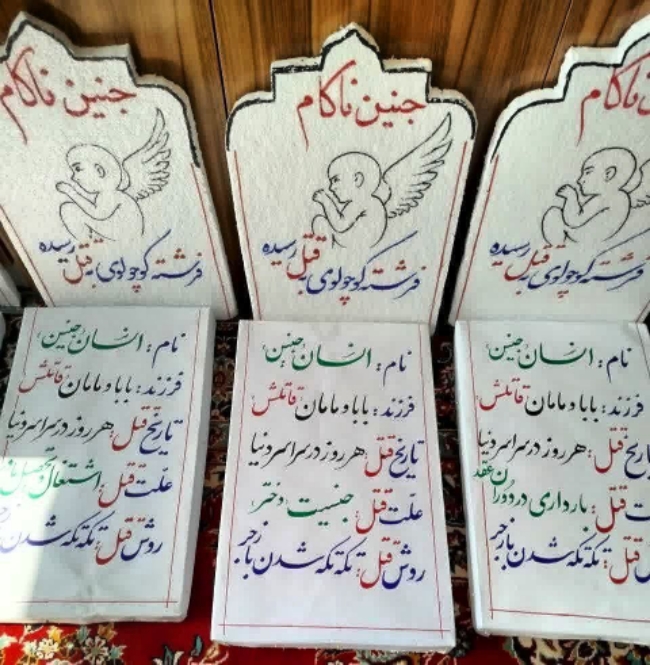 جنین ناکام
فرشته کوچولوی به قتل رسیده
نام: انسان (جنین)
فرزند: بابا و مامان قاتلش
تاریخ قتل: هر روز در سراسر دنیا
علت قتل: جنسیت (دختر)
روش قتل: تکه تکه شدن با زجر
ناکام
فرشته کوچولوی به قتل رسیده
نام: انسان (جنین)
فرزند: بابا و مامان قاتلش
تاریخ قتل: هر روز در سراسر دنیا
علت قتل: بارداری در دوران عقد
روش قتل: تکه تکه شدن با زجر
جنین ناکام
فرشته کوچولوی به قتل رسیده
نام: انسان (جنین)
فرزند: بابا و مامان قاتلش
تاریخ قتل: هر روز در سراسر دنیا
علت قتل: اشتغال تحصیل
روش قتل: تکه تکه شدن